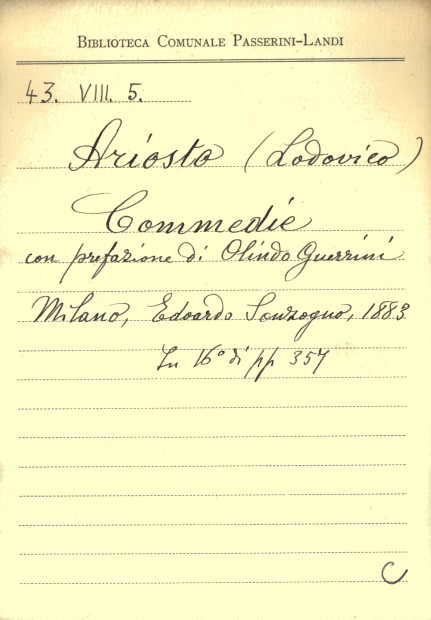 BIBLIOTECA COMUNALE PASSERINI-LANDI
43. VIII. 5.
Ariosto (Lodovico)
Commedie
con prefazione di Olindo Guerrini
Milano, Edoardo Sonzogno, 1883
In 16° di pp 357
C